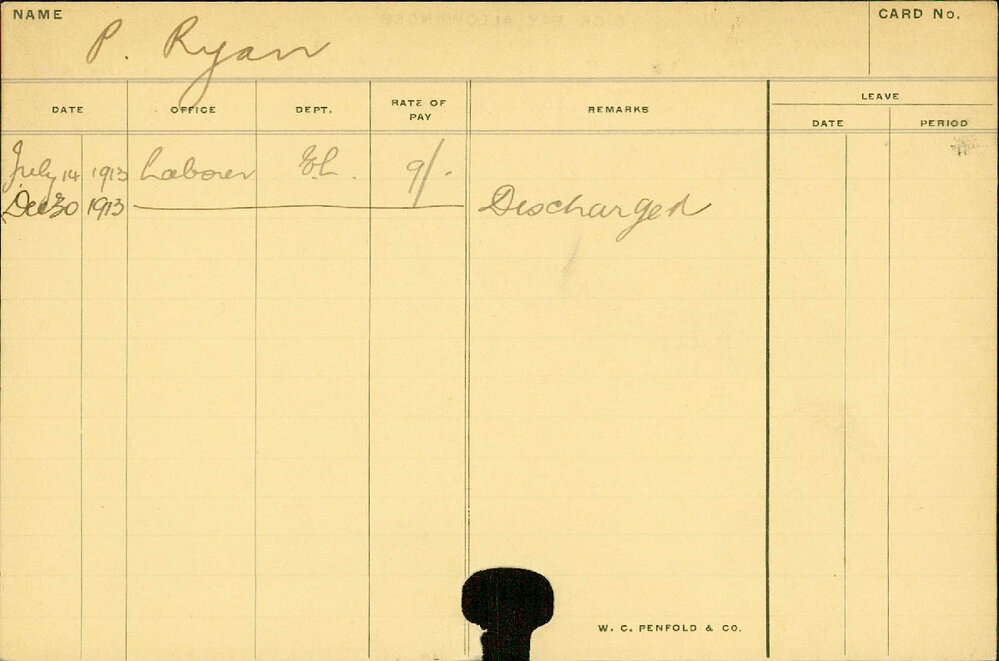 NAME
CARD No.
P. Ryan
DATE
OFFICE
DEPT.
RATE OF PAY
REMARKS
LEAVE
DATE
PERIOD
July 14 1913 Laborer E.L. 9/-
Dec 30 1913 Discharged
W. C. PENFOLD & CO.